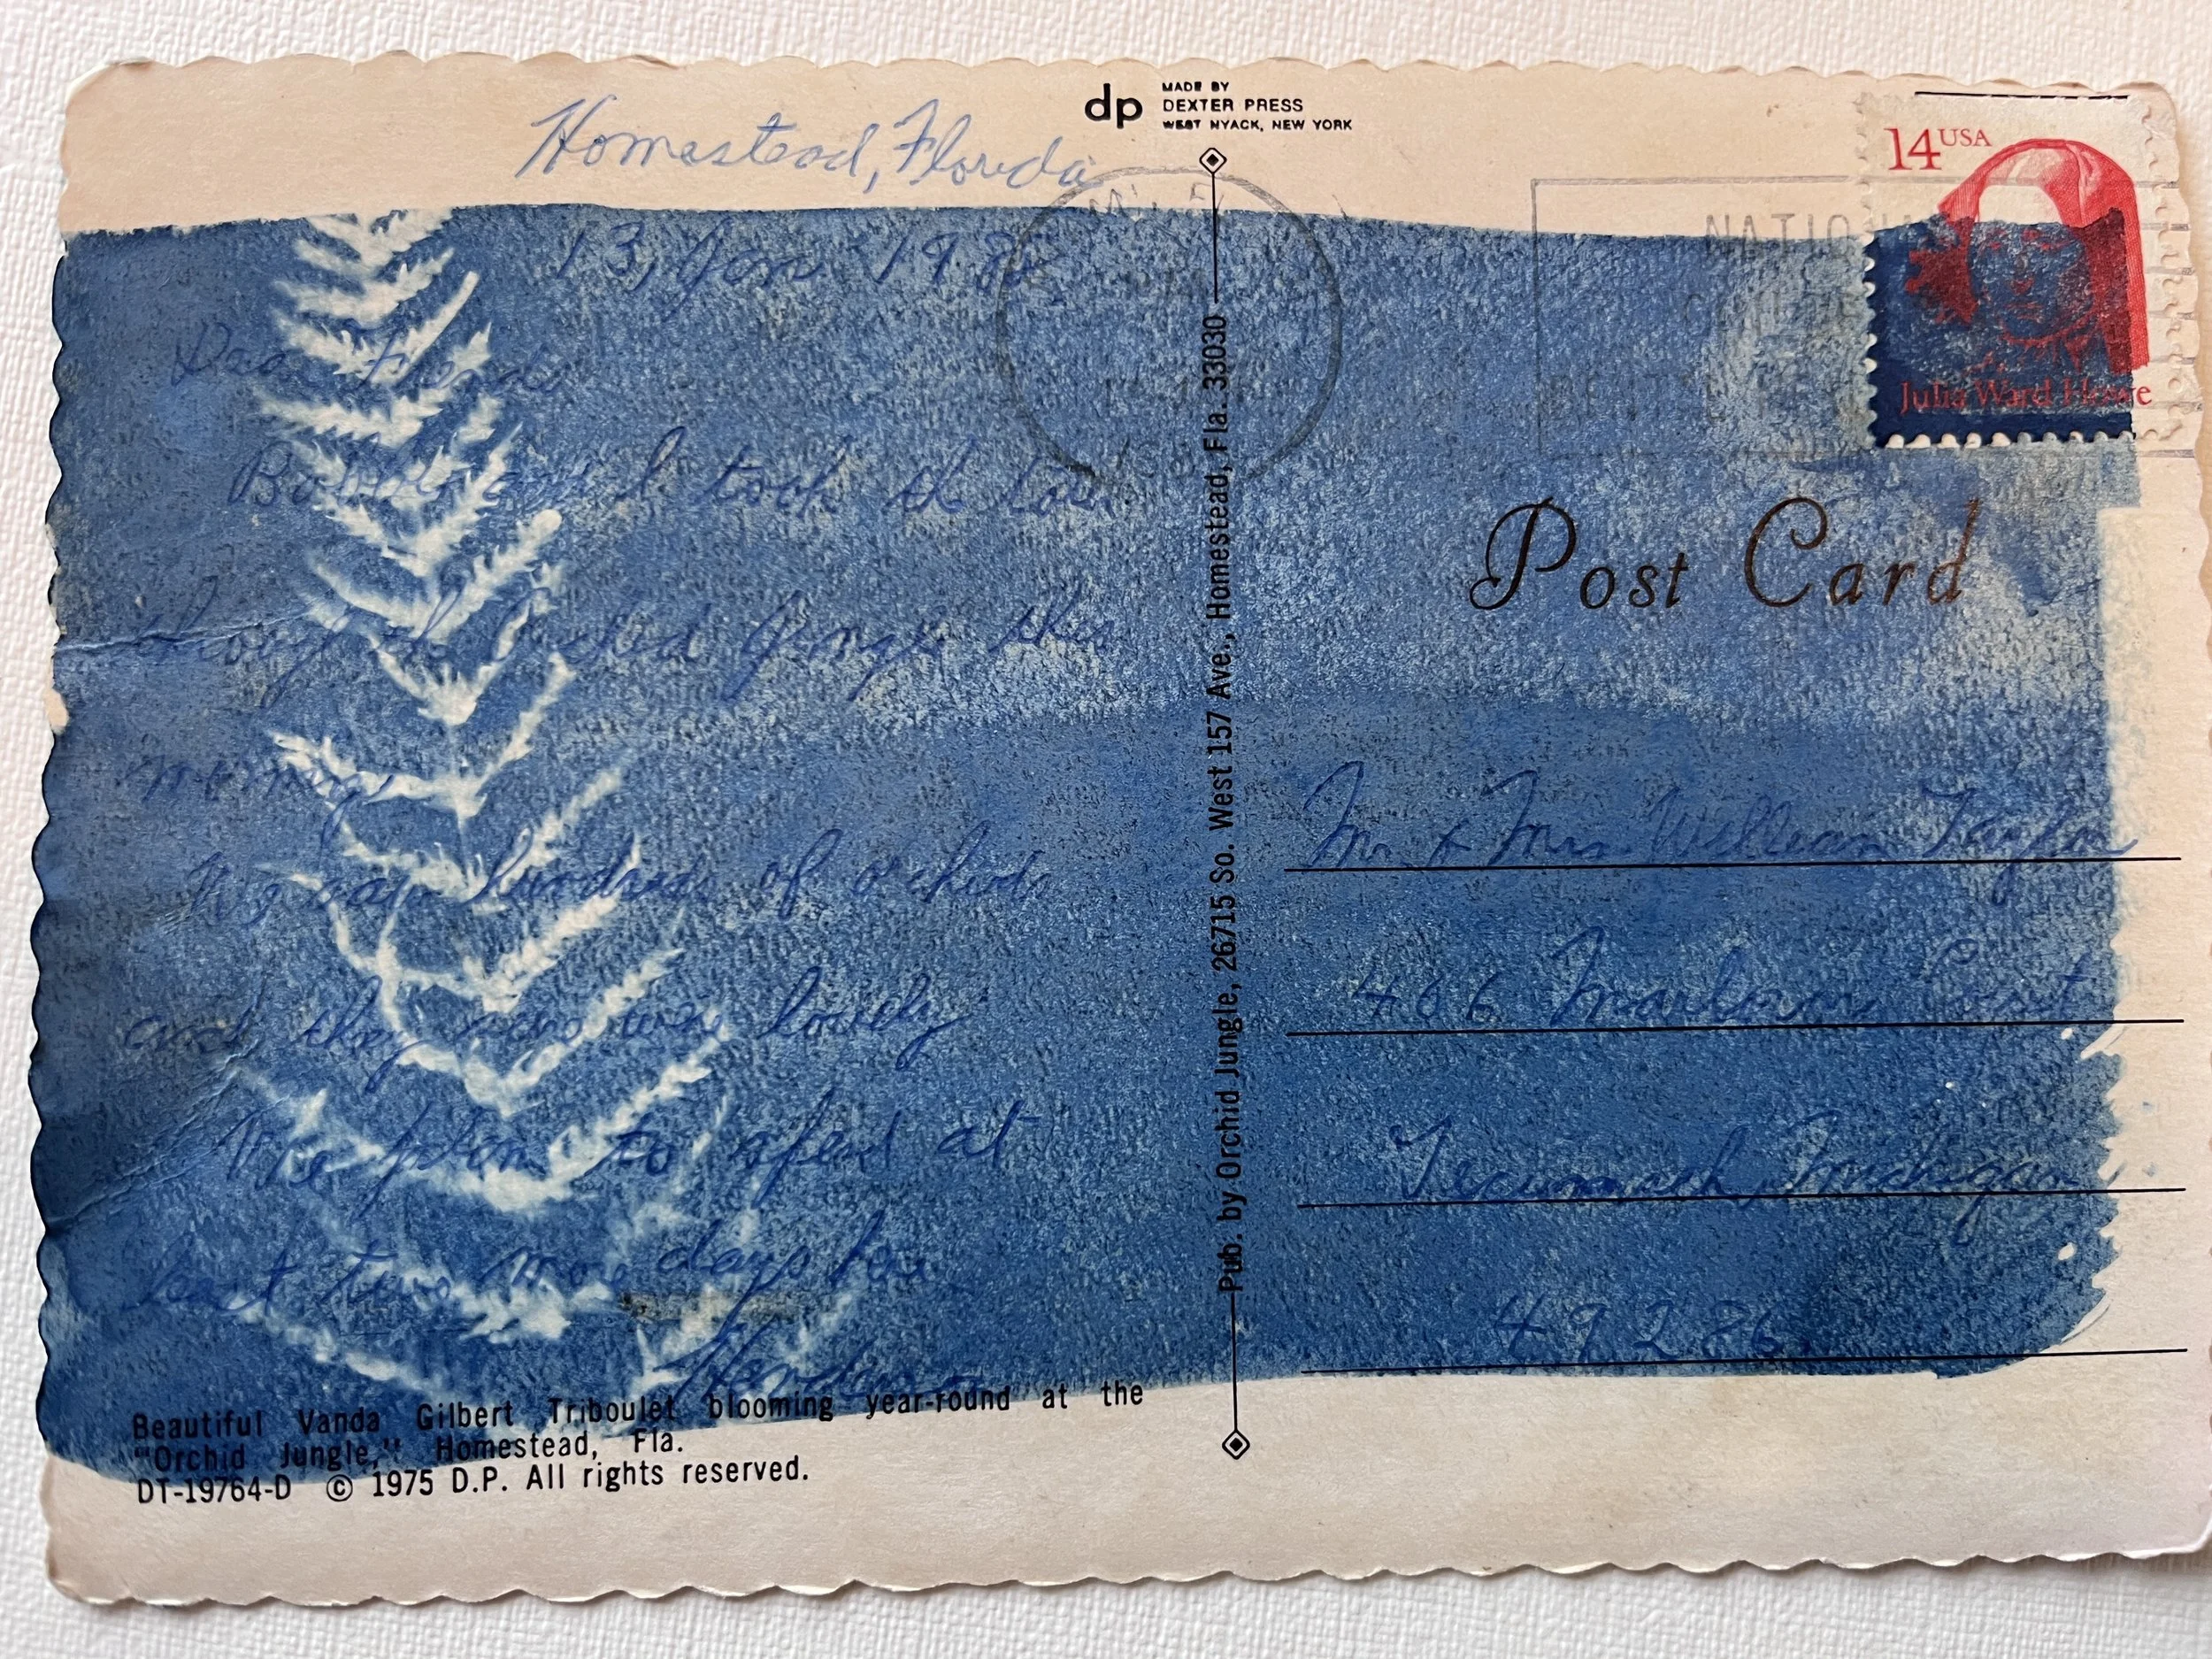 Homestead, Florida
13, Jan 198
Dear Friends
Bobbie and I took the tour
through the Orchid Jungle this
morning.
We saw hundreds of orchids
and they were lovely
We plan to spend at
least two more days here
dp
MADE BY
DEXTER PRESS
WEST NYACK, NEW YORK
Pub. by Orchid Jungle, 26715 So. West 157 Ave., Homestead, Fla. 33030
14 USA
Julia Ward Howe
NATIO
Post Card
Mr. & Mrs. William Taylor
406 Court
Tecumseh, Michigan
49286
Beautiful Vanda Gilbert Triboulet blooming year-round at the
"Orchid Jungle," Homestead, Fla.
DT-19764-D © 1975 D.P. All rights reserved.